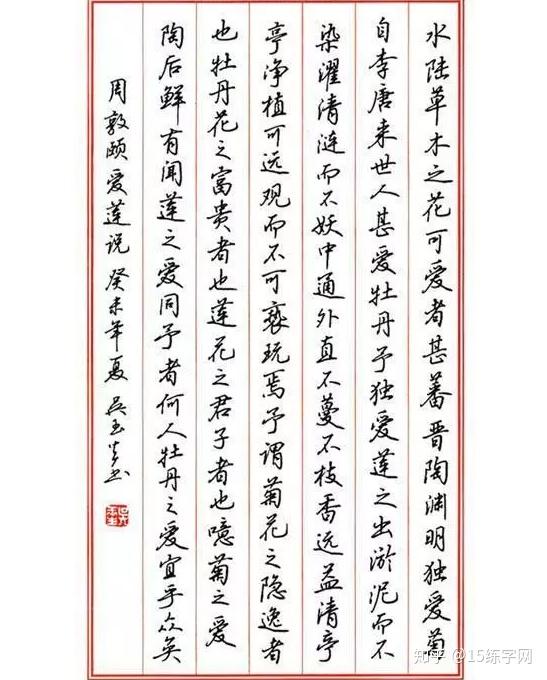 水陆草木之花可爱者甚蕃晋陶渊明独爱菊
自李唐来世人甚爱牡丹予独爱莲之出淤泥而不
染濯清涟而不妖中通外直不蔓不枝香远益清亭
亭净植可远观而不可亵玩焉予谓菊花之隐逸者
也牡丹花之富贵者也莲花之君子者也噫菊之爱
陶后鲜有闻莲之爱同予者何人牡丹之爱宜乎众矣
周敦颐爱莲说 癸未年夏 吴玉生书
知乎 @15练字网